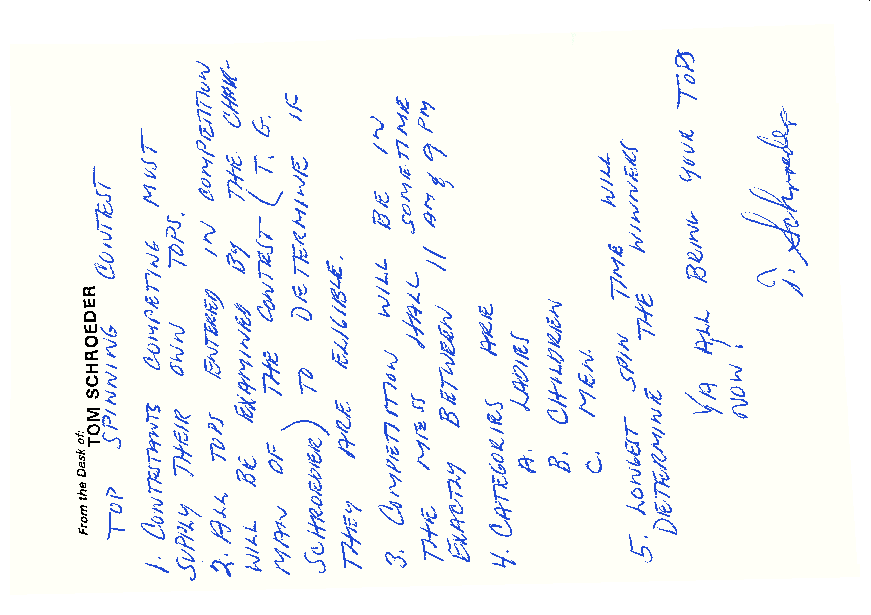 From the Desk of:
TOM SCHROEDER
TOP SPINNING CONTEST
1. CONTESTANTS COMPETING MUST
SUPPLY THEIR OWN TOPS.
2. ALL TOPS ENTERED IN COMPETITION
WILL BE EXAMINED BY THE CHAIR-
MAN OF THE CONTEST (T. G.
SCHROEDER) TO DETERMINE IF
THEY ARE ELIGIBLE.
3. COMPETITION WILL BE IN
THE MESS HALL SOMETIME
EXACTLY BETWEEN 11 AM & 9 PM
4. CATEGORIES ARE
A. LADIES
B. CHILDREN
C. MEN.
5. LONGEST SPIN TIME WILL
DETERMINE THE WINNERS
YA ALL BRING YOUR TOPS
NOW!
T. Schroeder